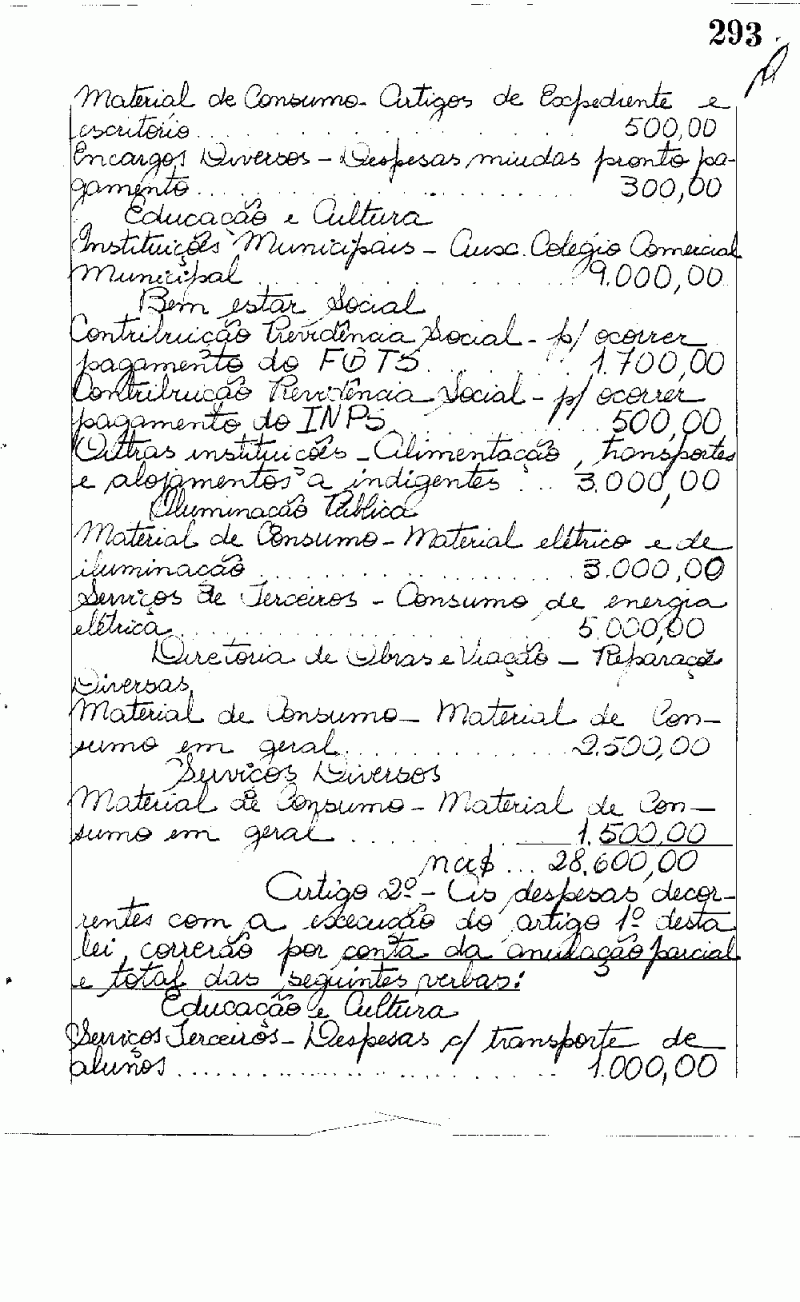 293
Material de Consumo - Artigos de Expediente e
escritório . . . . . . . . . . . . . . . . . . 500,00
Encargos Diversos - Despesas miudas pronto pa-
gamento . . . . . . . . . . . . . . . . . . 300,00
Educação e Cultura
Instituições Municipais - Aux. Colégio Comercial
Municipal . . . . . . . . . . . . . . . . . . 9.000,00
Bem estar Social
Contribuição Previdência Social - p/ ocorrer
pagamento do FGTS . . . . . . . . 1.700,00
Contribuição Previdência Social - p/ ocorrer
pagamento do INPS . . . . . . . . . . 500,00
Outras instituições - Alimentação, transportes
e alojamentos a indigentes . . . 3.000,00
Iluminação Pública
Material de Consumo - Material elétrico e de
iluminação . . . . . . . . . . . . . . . . . . 3.000,00
Serviços de Terceiros - Consumo de energia
elétrica . . . . . . . . . . . . . . . . . . . . 5.000,00
Diretoria de Obras e Viação - Reparações
Diversas
Material de Consumo - Material de Con-
sumo em geral . . . . . . . . . . . . 2.500,00
Serviços Diversos
Material de Consumo - Material de Con-
sumo em geral . . . . . . . . . . 1.500,00
NCr$ . . . 28.600,00
Artigo 2º - As despesas decor-
rentes com a execução do artigo 1º desta
lei, correrão por conta da anulação parcial
e total das seguintes verbas:
Educação e Cultura
Serviços Terceiros - Despesas c/ transporte de
alunos . . . . . . . . . . . . . . . . . . . . 1.000,00